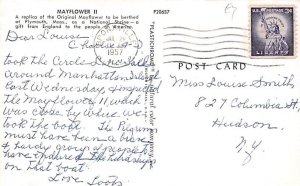 MAYFLOWER II
A replica of the Original Mayflower to be berthed
at Plymouth, Mass., on a National Shrine — a
gift from England to the people of America.
P20657
Dear Louise,
1957
took the Circle
around Manhattan Island
last Wednesday, & inspected
the Mayflower II, which
was close by where we
took the boat. The Pilgrims
must have been a brave
& hardy group of people
to have endured the hardship
on that boat.
Love
POST CARD
Miss Louise Smith
827 Columbia St.
Hudson,
N.Y.